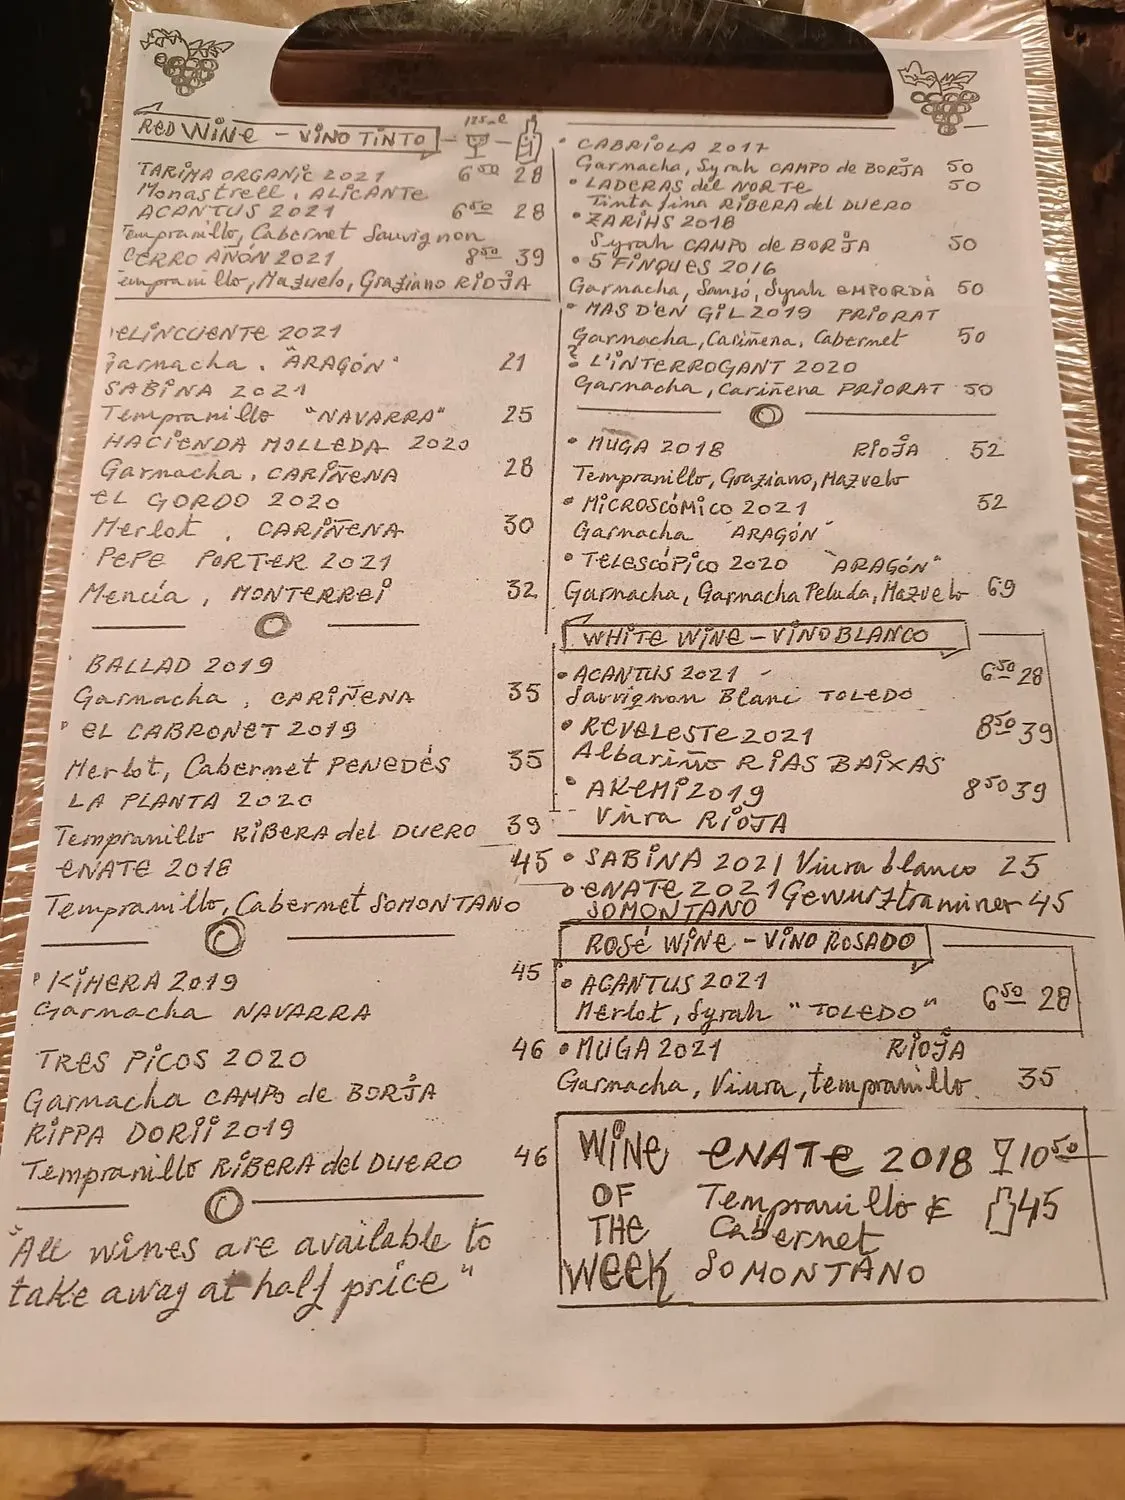 RED WINE - VINO TINTO - 125ml -
TARIMA ORGANIC 2021 6 50 28
Monastrell, ALICANTE
ACANTUS 2021 6 50 28
Tempranillo, Cabernet Sauvignon
CERRO AÑÓN 2021 8 50 39
empranillo, Mazuelo, Graziano RIOJA
ELINCUENTE 2021
Garnacha. "ARAGÓN" 21
SABINA 2021
Tempranillo "NAVARRA" 25
HACIENDA MOLLEDA 2020
Garnacha, CARIÑENA 28
EL GORDO 2020
Merlot, CARIÑENA 30
PEPE PORTER 2021
Mencía, MONTERREI 32
BALLAD 2019
Garnacha, CARIÑENA 35
EL CABRONET 2019
Merlot, Cabernet PENEDÉS 35
LA PLANTA 2020
Tempranillo RIBERA del DUERO 39
ENATE 2018 45
Tempranillo, Cabernet SOMONTANO
KIMERA 2019 45
Garnacha NAVARRA
TRES PICOS 2020 46
Garnacha CAMPO de BORJA
RIPPA DORII 2019
Tempranillo RIBERA del DUERO 46
"All wines are available to
take away at half price"
• CABRIOLA 2017
Garnacha, Syrah CAMPO de BORJA 50
• LADERAS del NORTE 50
Tinta fina RIBERA del DUERO
• ZARIHS 2018
Syrah CAMPO de BORJA 50
• 5 FINQUES 2016
Garnacha, Sansó, Syrah EMPORDÀ 50
• MAS D'EN GIL 2019 PRIORAT
Garnacha, Cariñena, Cabernet 50
? L'INTERROGANT 2020
Garnacha, Cariñena PRIORAT 50
• MUGA 2018 RIOJA 52
Tempranillo, Graziano, Mazuelo
• MICROSCÓMICO 2021 52
Garnacha "ARAGÓN"
• TELESCÓPICO 2020 "ARAGÓN"
Garnacha, Garnacha Peluda, Mazuelo 69
WHITE WINE - VINO BLANCO
• ACANTUS 2021 6 50 28
Sauvignon Blanc TOLEDO
• REVELESTE 2021 8 50 39
Albariño RIAS BAIXAS
• AKEMI 2019 8 50 39
Viura RIOJA
• SABINA 2021 Viura blanco 25
• ENATE 2021 Gewurztraminer 45
SOMONTANO
ROSÉ WINE - VINO ROSADO
• ACANTUS 2021
Merlot, Syrah "TOLEDO" 6 50 28
• MUGA 2021 RIOJA
Garnacha, Viura, tempranillo. 35
WINE ENATE 2018 10 50
OF Tempranillo & 45
THE Cabernet
WEEK SOMONTANO